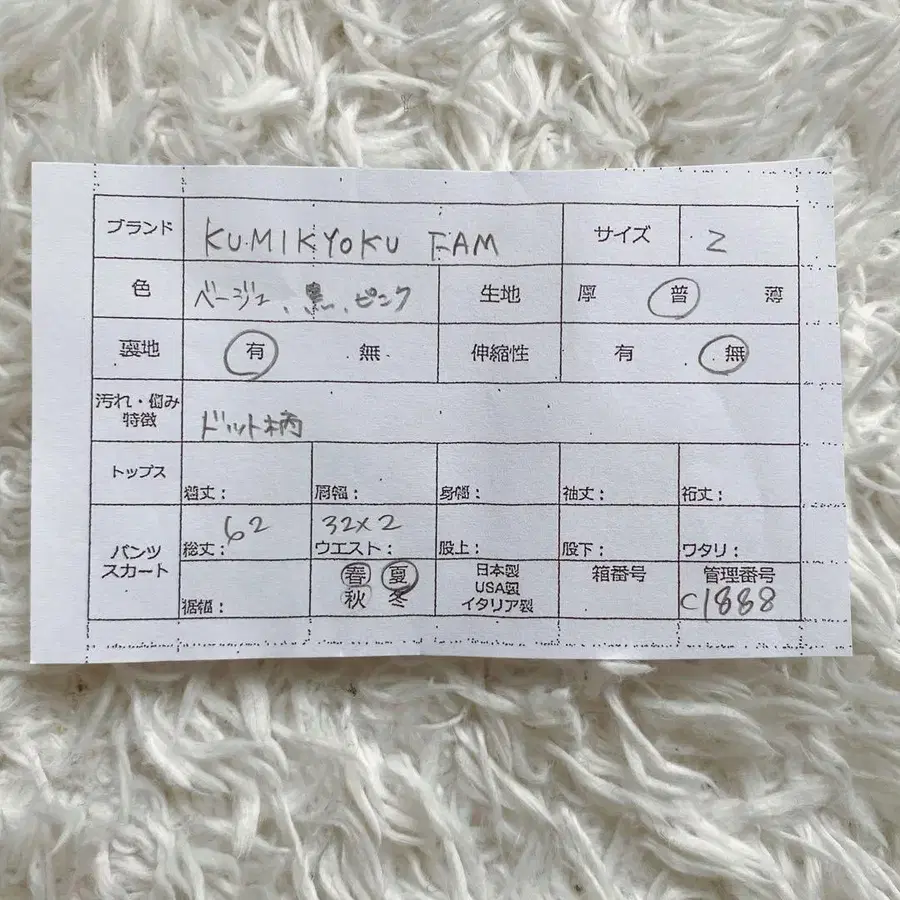 ブランド KUMIKYOKU FAM サイズ 2
色 ベージュ、黒、ピンク 生地 厚 普 薄
裏地 有 無 伸縮性 有 無
汚れ・傷み
特徴 ドット柄
トップス 着丈: 肩幅: 身幅: 袖丈: 裄丈:
パンツ
スカート 総丈: 62 ウエスト: 32×2 股上: 股下: ワタリ:
裾幅: 春 夏 秋 冬 日本製 USA製 イタリア製 箱番号 管理番号 C1888